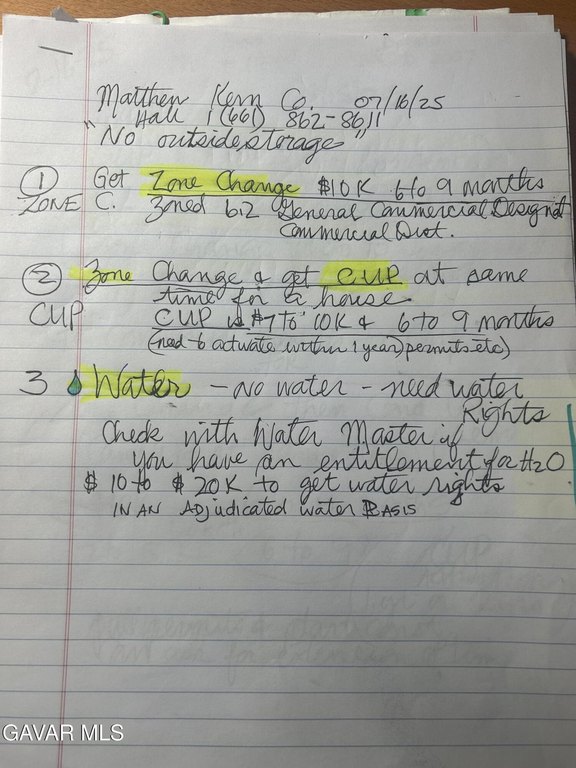 Matthew Kern Co. 07/16/25
Hall 1(661) 862-8611
"No outside storage"
① Get Zone Change $10K 6 to 9 months
ZONE C. Zoned b.2 General Commercial Designat
Commercial Dist.
② Zone Change & get CUP at same
time for a house.
CUP CUP is $7 to 10K & 6 to 9 months
(need to activate within 1 year) permits etc)
3 Water - no water - need water
Rights
Check with Water Master if
you have an entitlement for H2O
$ 10 to $ 20K to get water rights
IN AN Adjudicated water BASIS
GAVAR MLS